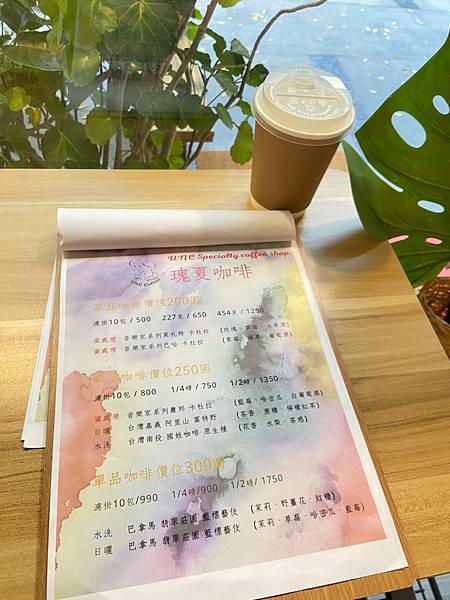 UNC Specialty coffee shop
UNC Coffee
瑰夏咖啡
單品咖啡價位200圓
濾掛10包 / 500 227克 / 650 454克 / 1250
蜜處理 音樂家系列莫札特 卡杜拉 (玫瑰、
蜜處理 音樂家系列巴哈 卡杜拉 (草莓、蘋果、葡萄酒)
咖啡價位250圓
濾掛10包 / 800 1/4磅 / 750 1/2磅 / 1350
蜜處理 音樂家系列蕭邦 卡杜拉 (藍莓、哈密瓜、白葡萄酒)
日曬 台灣嘉義 阿里山 富特野 (茶香、蔗糖、檸檬紅茶)
水洗 台灣南投 國姓咖啡 原生種 (花香、水梨、茶感)
單品咖啡價位300圓
濾掛10包/990 1/4磅/900 1/2磅 / 1750
水洗 巴拿馬 翡翠莊園 藍標藝伎 (茉莉、野薑花、紅糖)
日曬 巴拿馬 翡翠莊園 藍標藝伎 (茉莉、草莓、哈密瓜、藍莓)